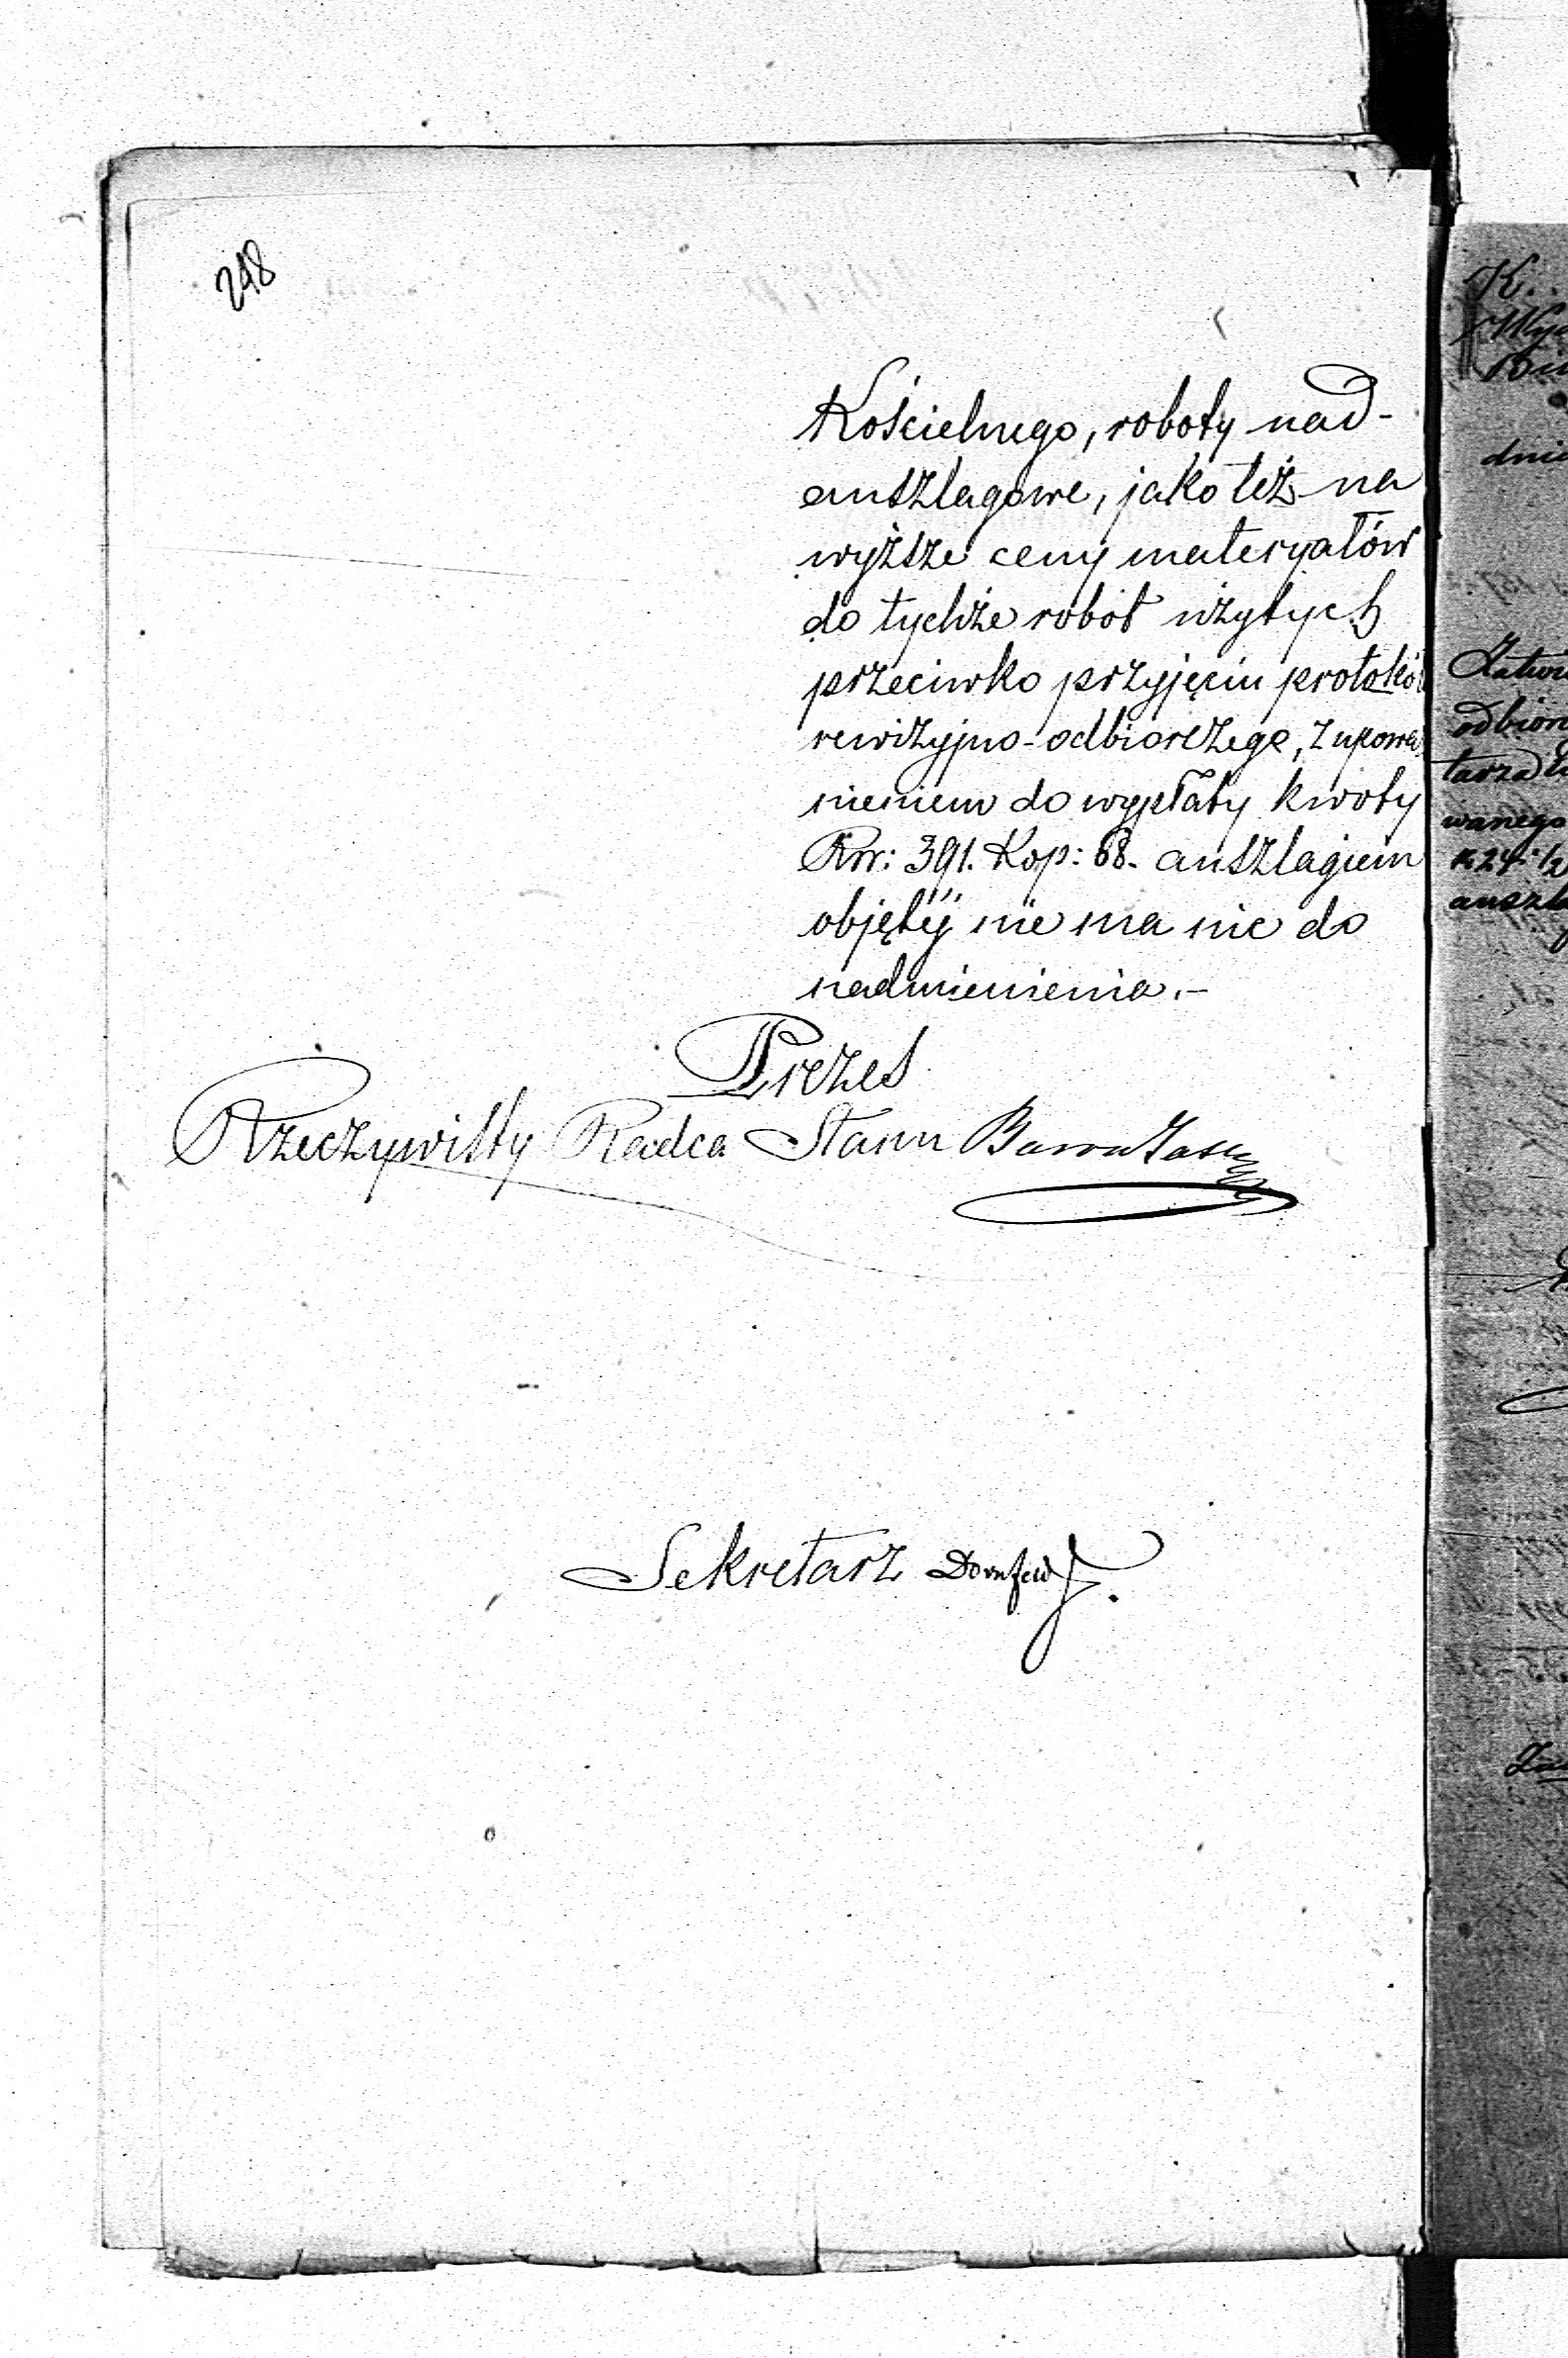 248
Kościelnego, roboty nad-
anszlagowe, jako też na
wyższe ceny materyałów
do tychże robot użytych
przeciwko przyjęciu protokó
rewizyjno-odbiorczego, z upowa
nieniem do wypłaty kwoty
Rsr: 391. Kop: 68. anszlagiem
objętÿ nie ma nic do
nadmienienia.-
Prezes
Rzeczywisty Radca Stanu
Sekretarz Dornfeld
K.
dnia
odbior
tarza
wanego
k 24 1/2
anszla